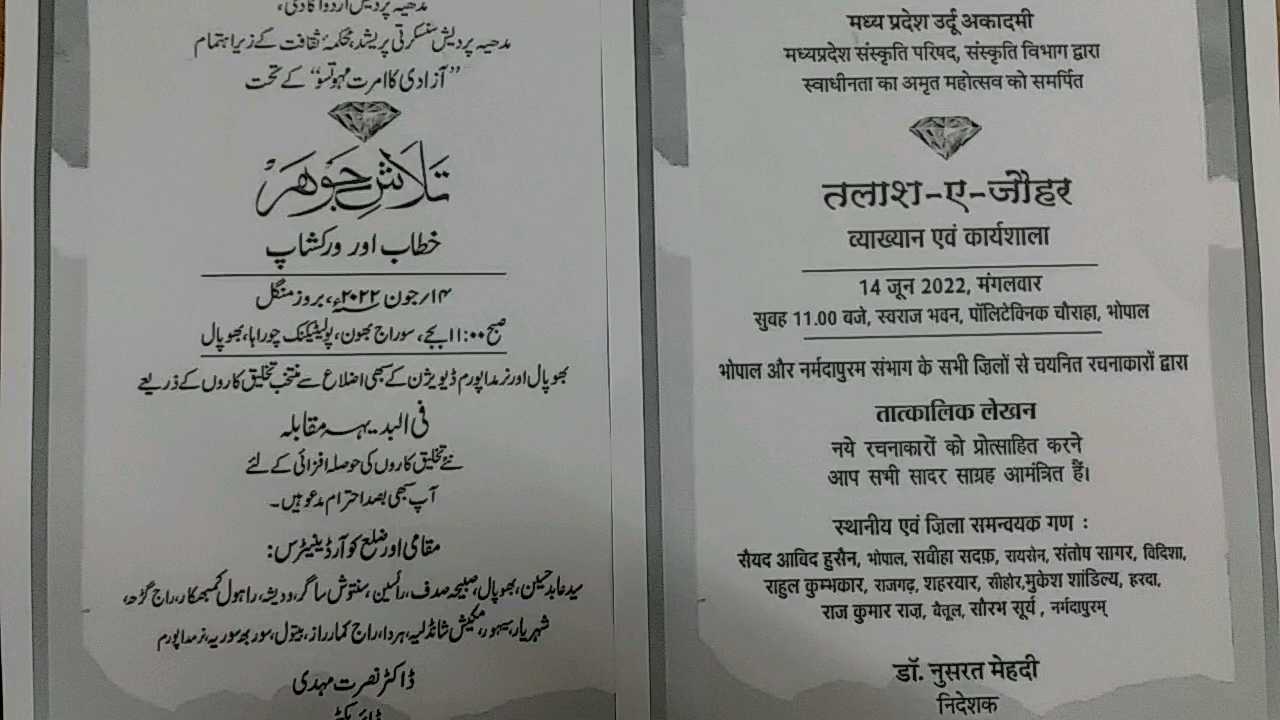 مدھیہ پردیش اردو اکادمی،
مدھیہ پردیش سنسکرتی پریشد، محکمۂ ثقافت کے زیر اہتمام
”آزادی کا امرت مہوتسو“ کے تحت
تلاشِ جوہر
خطاب اور ورکشاپ
۱۴؍جون ۲۰۲۲ء، بروز منگل
صبح ۱۱:۰۰ بجے، سوراج بھون، پولیٹیکنک چوراہا، بھوپال
بھوپال اور نرمداپورم ڈیویژن کے سبھی اضلاع سے منتخب تخلیق کاروں کے ذریعے
فی البدیہہ مقابلہ
نئے تخلیق کاروں کی حوصلہ افزائی کے لئے
آپ سبھی بصد احترام مدعو ہیں۔
مقامی اور ضلع کوآرڈینیٹرس:
سید عابد حسین، بھوپال، صبیحہ صدف، رائسین، سنتوش ساگر، ودیشہ، راہول کمبھکار، راج گڑھ،
شہریار، سیہور، مکیش شانڈلیہ، ہردا، راج کمار راز، بیتول، سوربھ سوریہ، نرمداپورم
ڈاکٹر نصرت مہدی
ڈائریکٹر
मध्य प्रदेश उर्दू अकादमी
मध्यप्रदेश संस्कृति परिषद, संस्कृति विभाग द्वारा
स्वाधीनता का अमृत महोत्सव को समर्पित
तलाश-ए-जौहर
व्याख्यान एवं कार्यशाला
14 जून 2022, मंगलवार
सुवह 11.00 बजे, स्वराज भवन, पॉलिटेक्निक चौराहा, भोपाल
भोपाल और नर्मदापुरम संभाग के सभी ज़िलों से चयनित रचनाकारों द्वारा
तात्कालिक लेखन
नये रचनाकारों को प्रोत्साहित करने
आप सभी सादर साग्रह आमंत्रित हैं।
स्थानीय एवं ज़िला समन्वयक गण :
सैयद आविद हुसैन, भोपाल, सवीहा सदफ़, रायसेन, संतोष सागर, विदिशा,
राहुल कुम्भकार, राजगढ़, शहरयार, सीहोर,मुकेश शांडिल्य, हरदा,
राज कुमार राज़, वैतूल, सौरभ सूर्य , नर्गदापुरम्
डॉ. नुसरत मेहदी
निदेशक